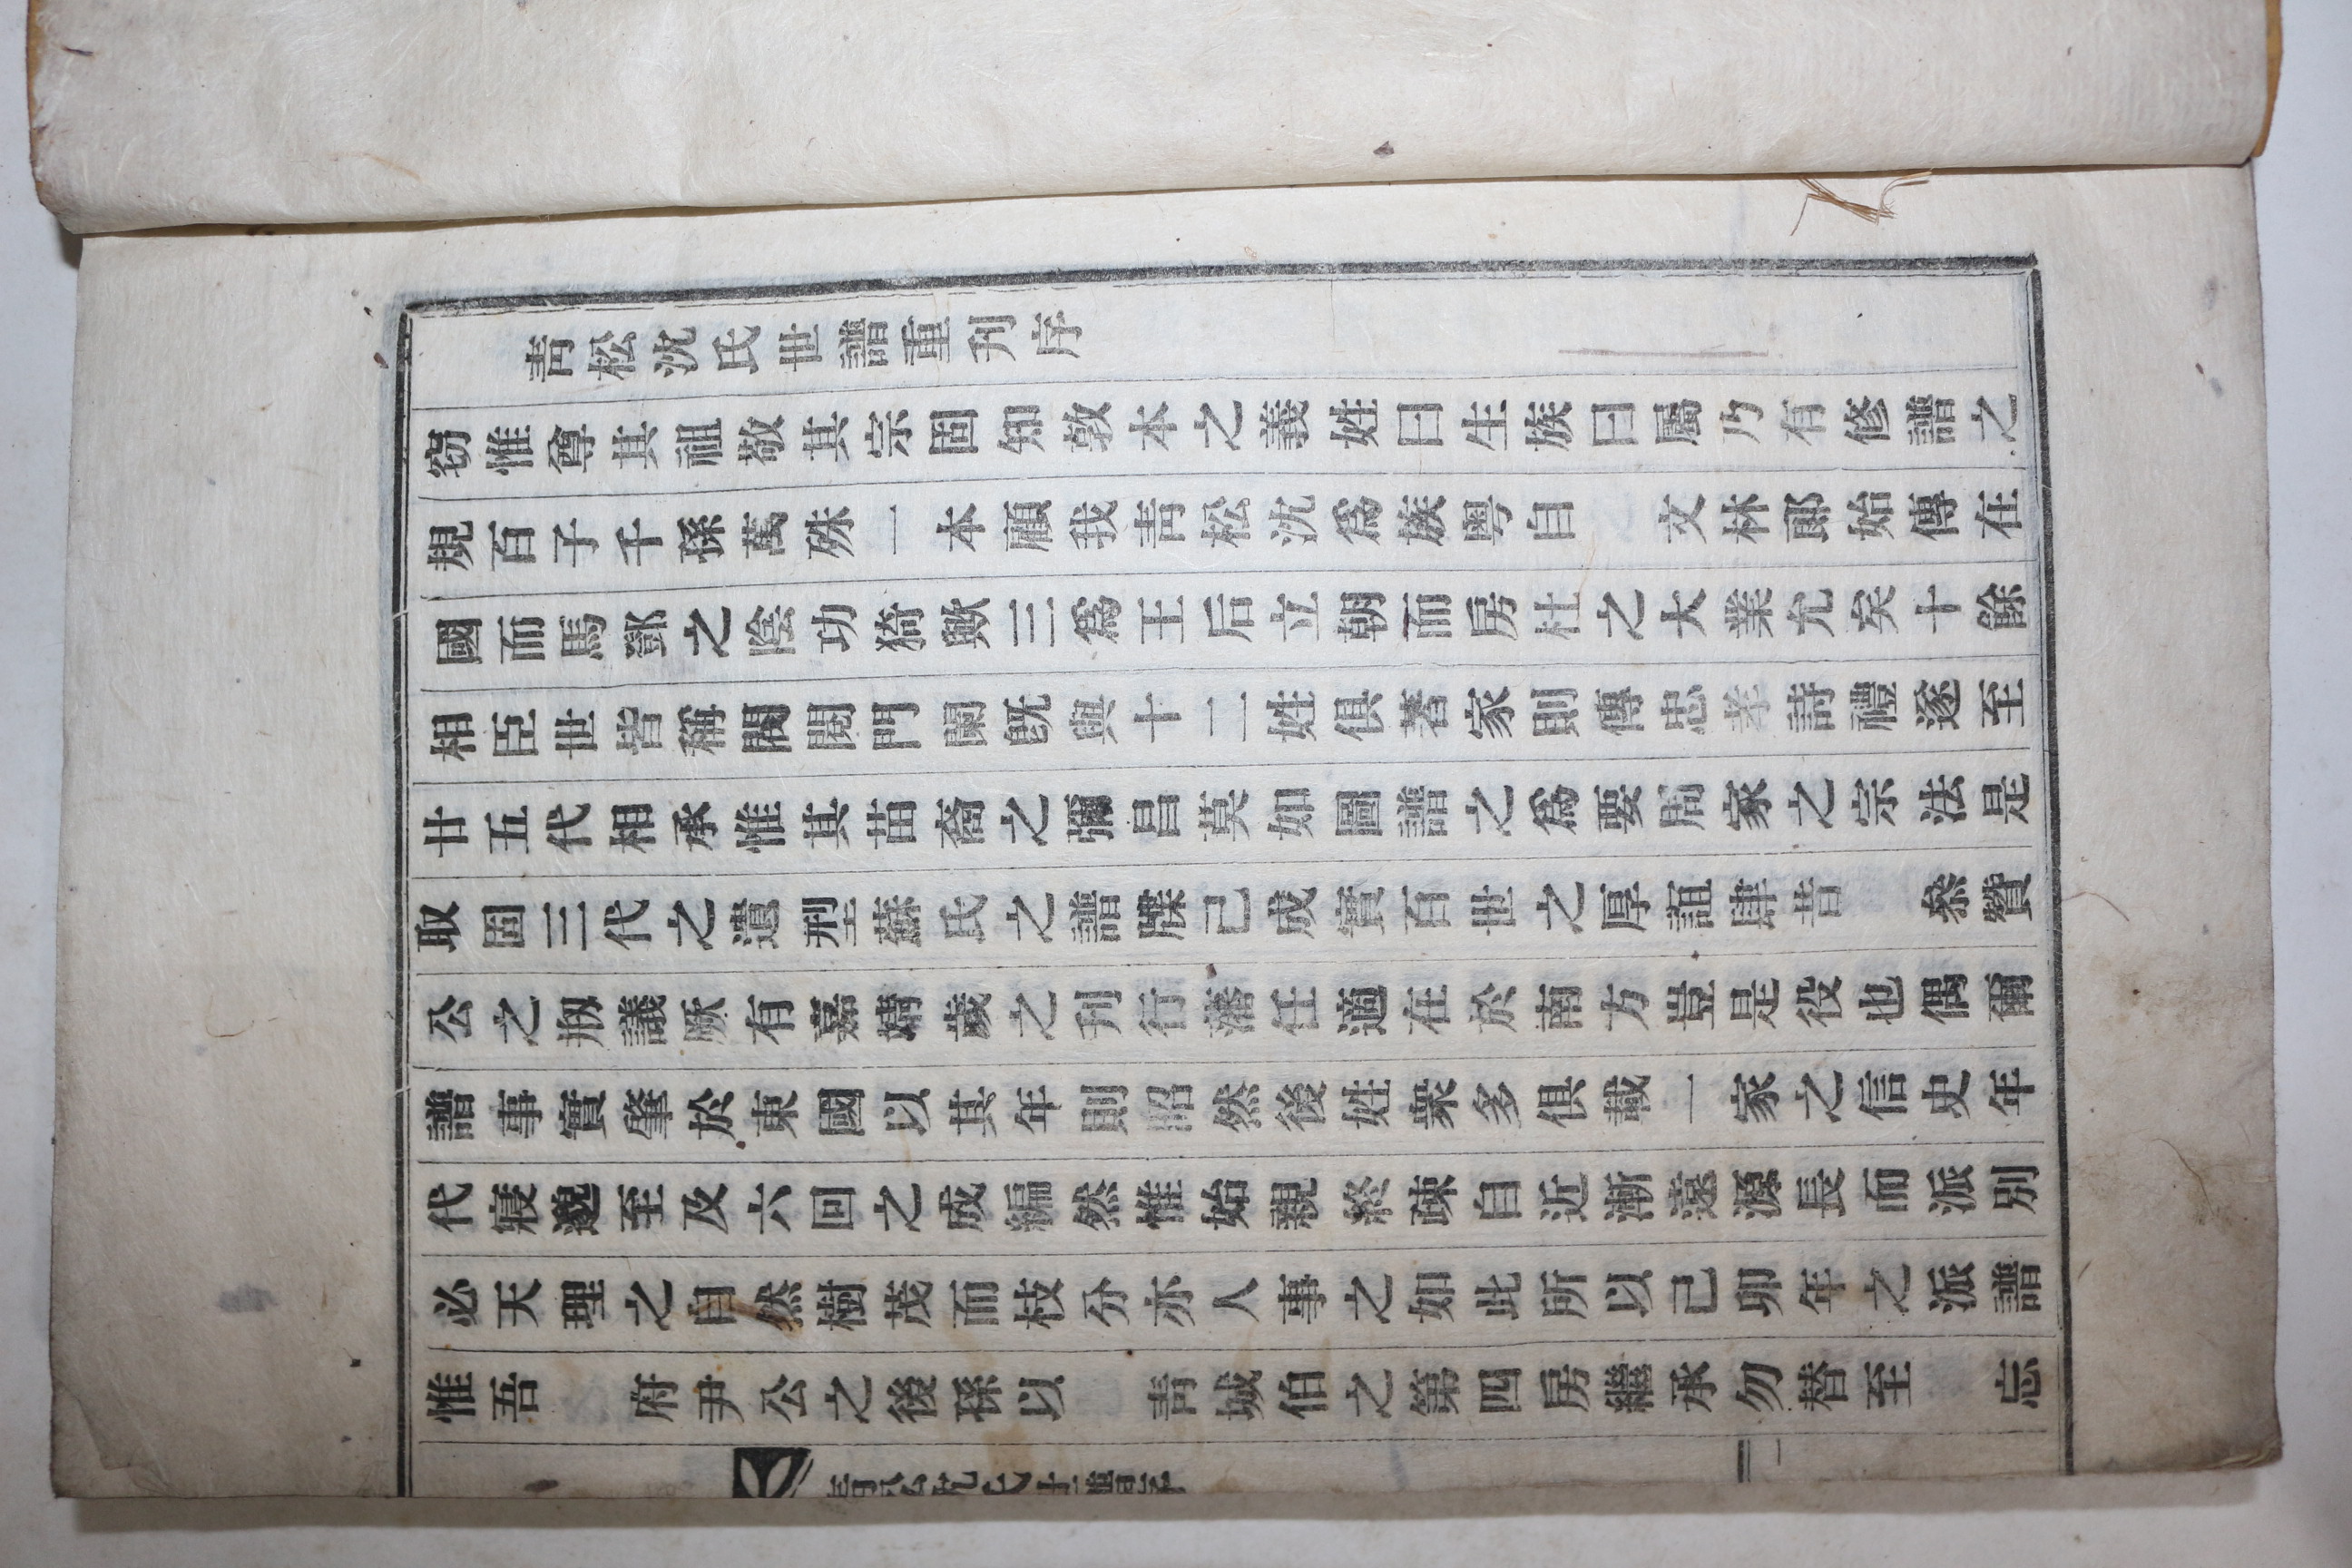 靑松沈氏世譜重刊序
窃惟尊其祖敬其宗固知敦本之義姓曰生族曰屬乃有修譜之
規百子千孫萬殊一本顧我靑松沈爲族粤自 文林郞始傳在
國而馬鄧之陰功猗歟三爲王后立朝而房杜之大業允矣十餘
相臣世皆稱閥閱門闌旣與十二姓俱著家則傳忠孝詩禮遂至
廿五代相承惟其苗裔之彌昌莫如圖譜之爲要周家之宗法是
取固三代之遺型蘇氏之譜牒己成實百世之厚誼肆昔 叅贊
公之刱議厥有嘉靖歲之刊行藩任適在於南方豈是役也偶爾
譜事實肇於東國以其年則昭然後姓衆多俱載一家之信史年
代寢邈至及六回之成編然惟始親終疎自近漸遠源長而派別
必天理之自然樹茂而枝分亦人事之如此所以己卯年之派譜
惟吾 府尹公之後孫以 靑城伯之第四房繼承勿替至 忘
靑松沈氏世譜序
一